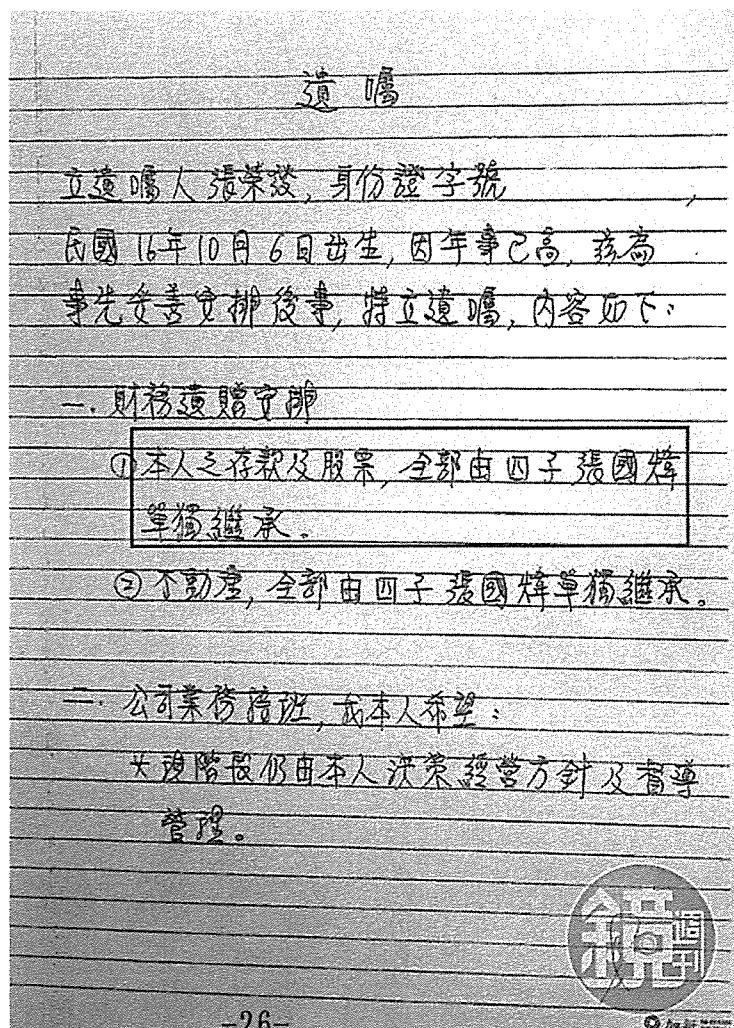 遺囑
立遺囑人張榮發,身份證字號 ,
民國16年10月6日出生,因年事已高,茲為
事先妥善安排後事,特立遺囑,內容如下:
一.財務遺贈安排
①本人之存款及股票,全部由四子張國煒
單獨繼承。
②不動產,全部由四子張國煒單獨繼承。
二.公司業務接班,我本人希望:
*現階段仍由本人決策經營方針及督導
管理。
鏡週刊
-26-